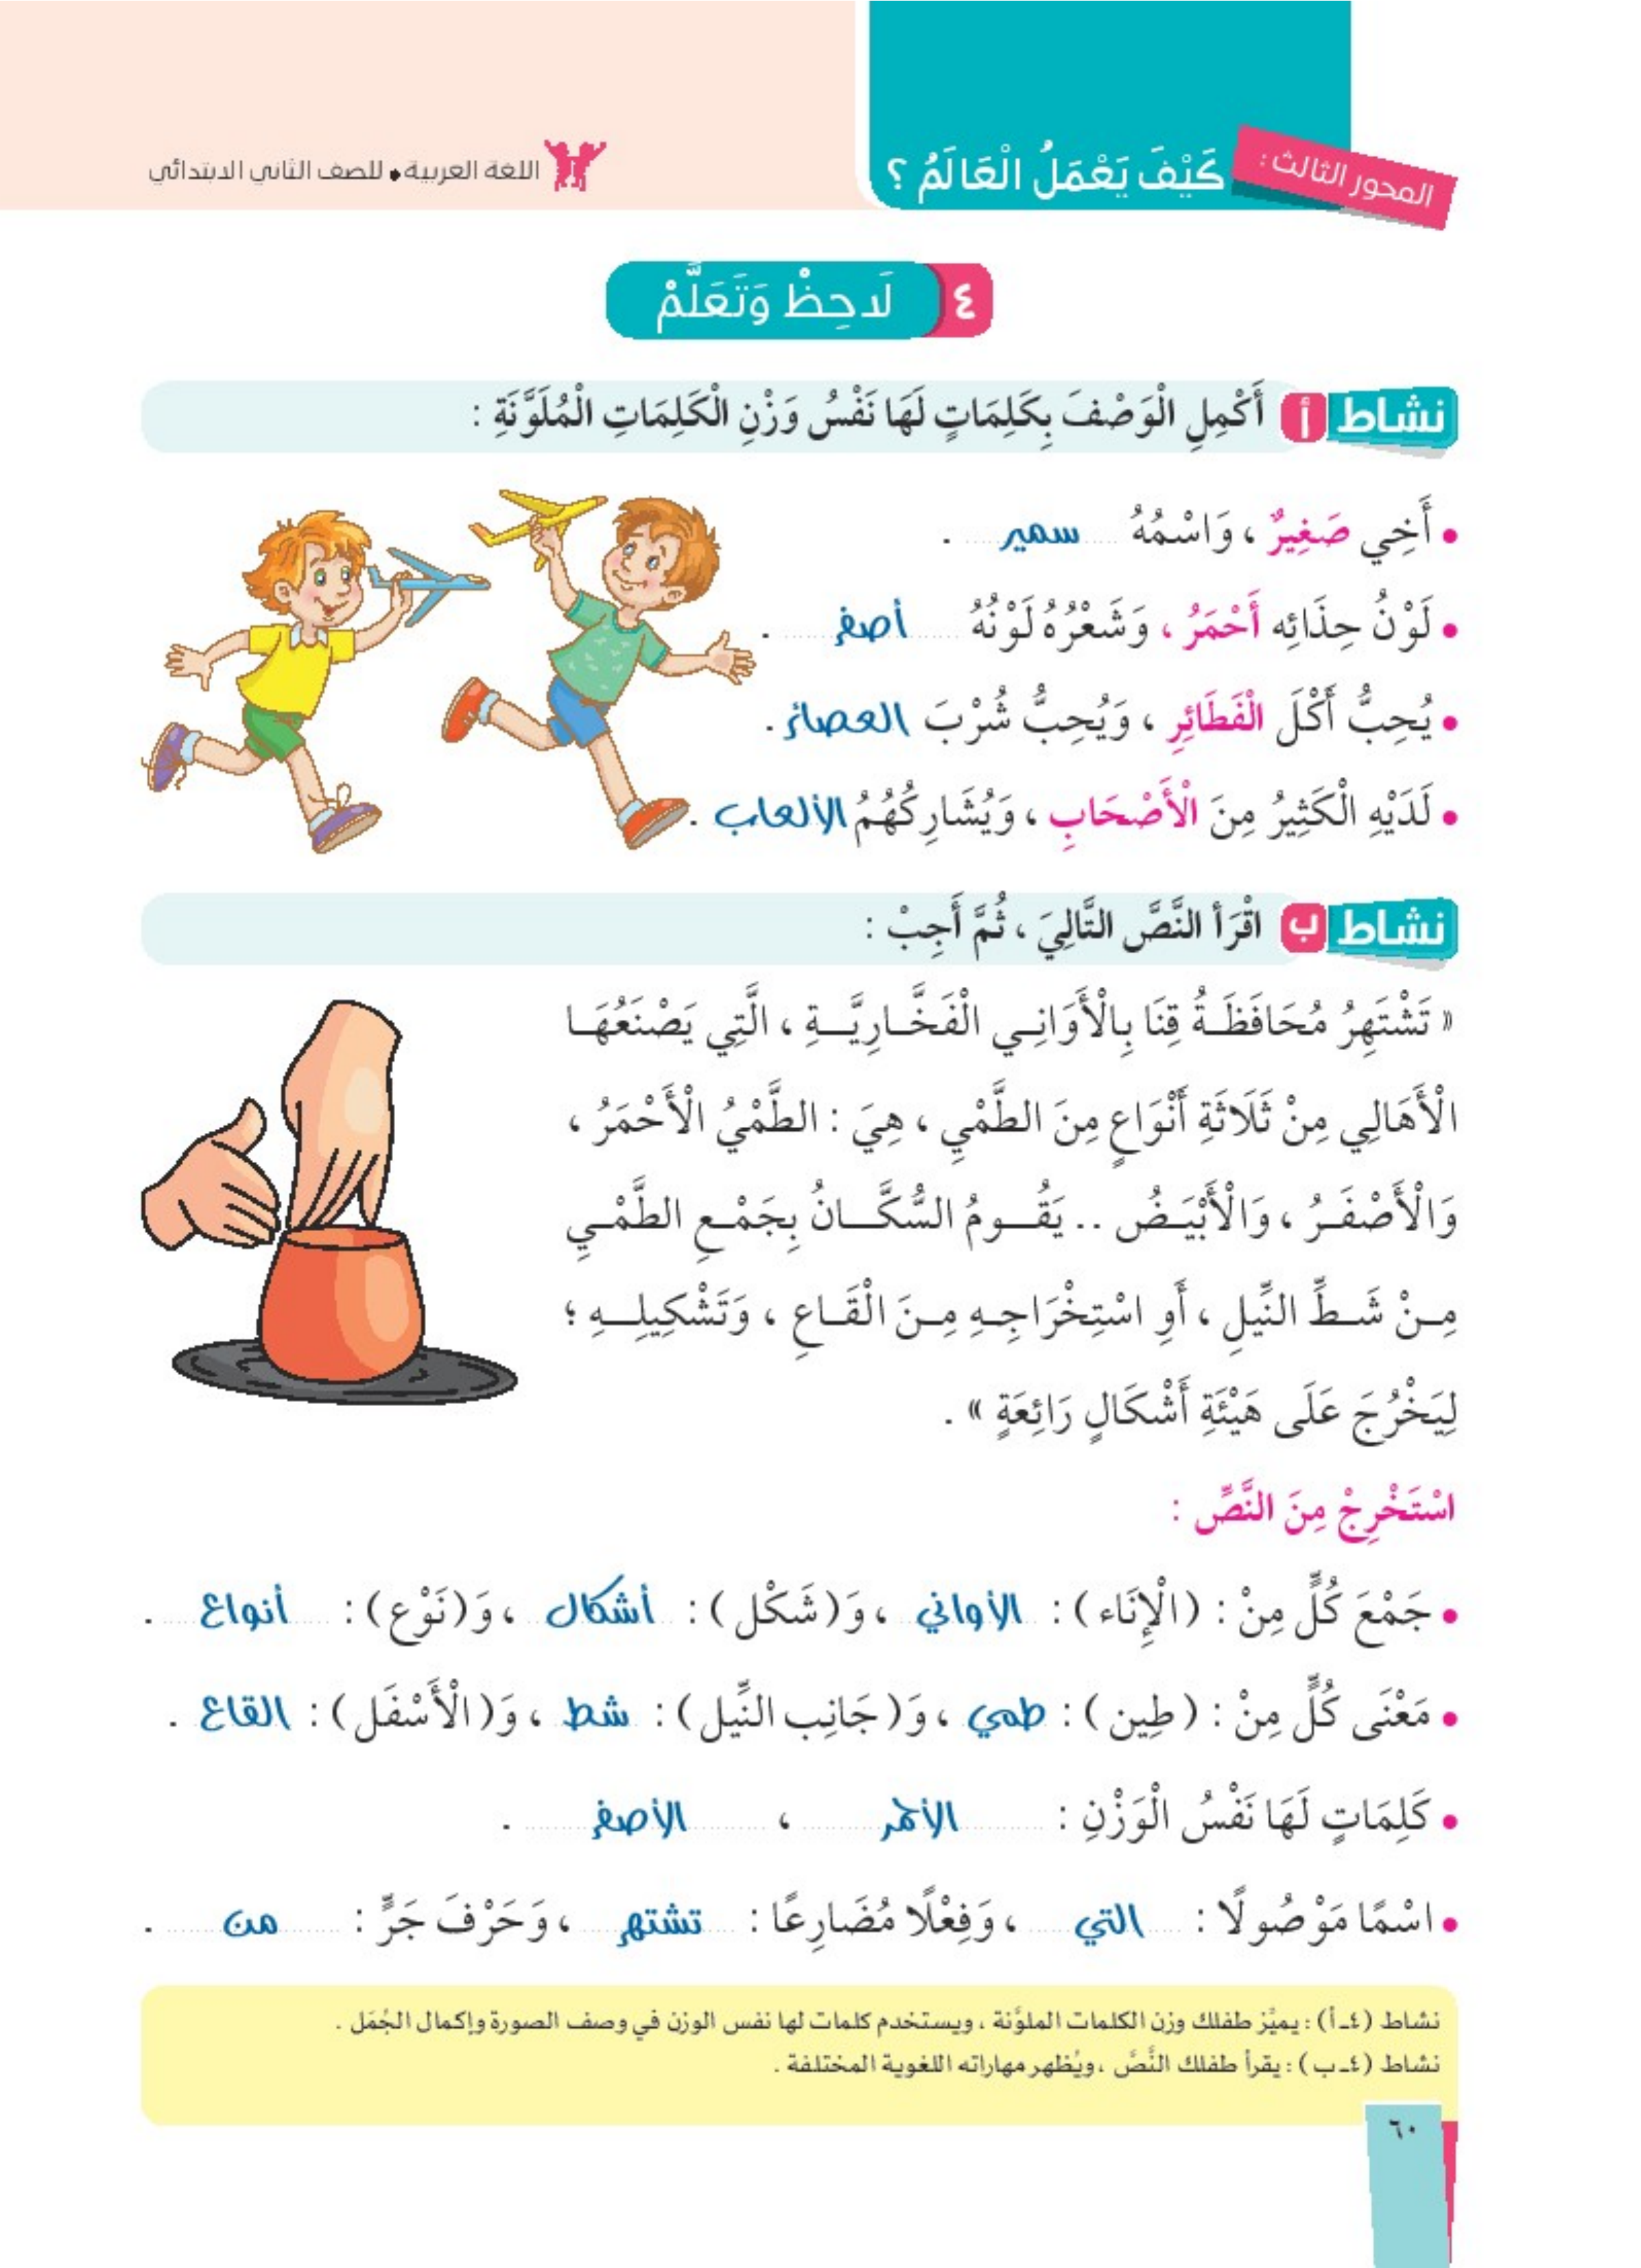 المحور الثالث : كَيْفَ يَعْمَلُ الْعَالَمُ ؟
اللغة العربية • للصف الثاني الابتدائي
٤ لَاحِظْ وَتَعَلَّمْ
نشاط أ أَكْمِلِ الْوَصْفَ بِكَلِمَاتٍ لَهَا نَفْسُ وَزْنِ الْكَلِمَاتِ الْمُلَوَّنَةِ :
• أَخِي صَغِيرٌ ، وَاسْمُهُ سمير .
• لَوْنُ حِذَائِه أَحْمَرُ ، وَشَعْرُهُ لَوْنُهُ أصفر .
• يُحِبُّ أَكْلَ الْفَطَائِرِ ، وَيُحِبُّ شُرْبَ العصائر .
• لَدَيْهِ الْكَثِيرُ مِنَ الْأَصْحَابِ ، وَيُشَارِكُهُمُ الألعاب .
نشاط ب اقْرَأ النَّصَّ التَّالِيَ ، ثُمَّ أَجِبْ :
« تَشْتَهِرُ مُحَافَظَةُ قِنَا بِالْأَوَانِي الْفَخَّارِيَّةِ ، الَّتِي يَصْنَعُهَا
الْأَهَالِي مِنْ ثَلَاثَةِ أَنْوَاعٍ مِنَ الطَّمْيِ ، هِيَ : الطَّمْيُ الْأَحْمَرُ ،
وَالْأَصْفَرُ ، وَالْأَبْيَضُ .. يَقُومُ السُّكَّانُ بِجَمْعِ الطَّمْيِ
مِنْ شَطِّ النِّيلِ ، أَوِ اسْتِخْرَاجِهِ مِنَ الْقَاعِ ، وَتَشْكِيلِهِ ؛
لِيَخْرُجَ عَلَى هَيْئَةِ أَشْكَالٍ رَائِعَةٍ » .
اسْتَخْرِجْ مِنَ النَّصِّ :
• جَمْعَ كُلٍّ مِنْ : (الْإِنَاء) : الأواني ، وَ(شَكْل) : أشكال ، وَ(نَوْع) : أنواع .
• مَعْنَى كُلٍّ مِنْ : (طِين) : طمي ، وَ(جَانِب النِّيل) : شط ، وَ(الْأَسْفَل) : القاع .
• كَلِمَاتٍ لَهَا نَفْسُ الْوَزْنِ : الأحمر ، الأصفر .
• اسْمًا مَوْصُولًا : التي ، وَفِعْلًا مُضَارِعًا : تشتهر ، وَحَرْفَ جَرٍّ : من .
نشاط (٤ـ أ) : يميِّز طفلك وزن الكلمات الملوَّنة ، ويستخدم كلمات لها نفس الوزن في وصف الصورة وإكمال الجُمَل .
نشاط (٤ـ ب) : يقرأ طفلك النَّصَّ ، ويُظهر مهاراته اللغوية المختلفة .
٦٠